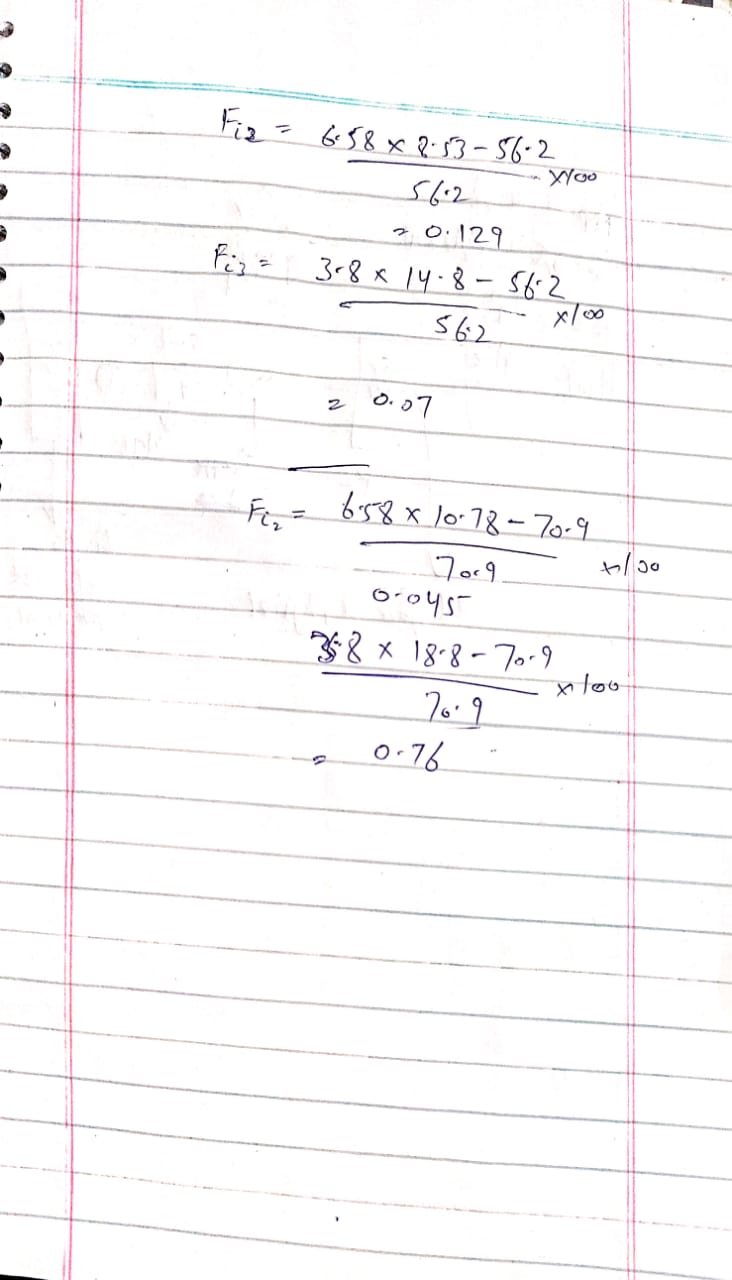 Fi2 = 6.58 × 8.53 - 56.2
56.2
×100
= 0.129
Fi3 = 3.8 × 14.8 - 56.2
56.2
×100
= 0.07
Fi2 = 6.58 × 10.78 - 70.9
70.9
×100
0.045
3.8 × 18.8 - 70.9
70.9
×100
= 0.76